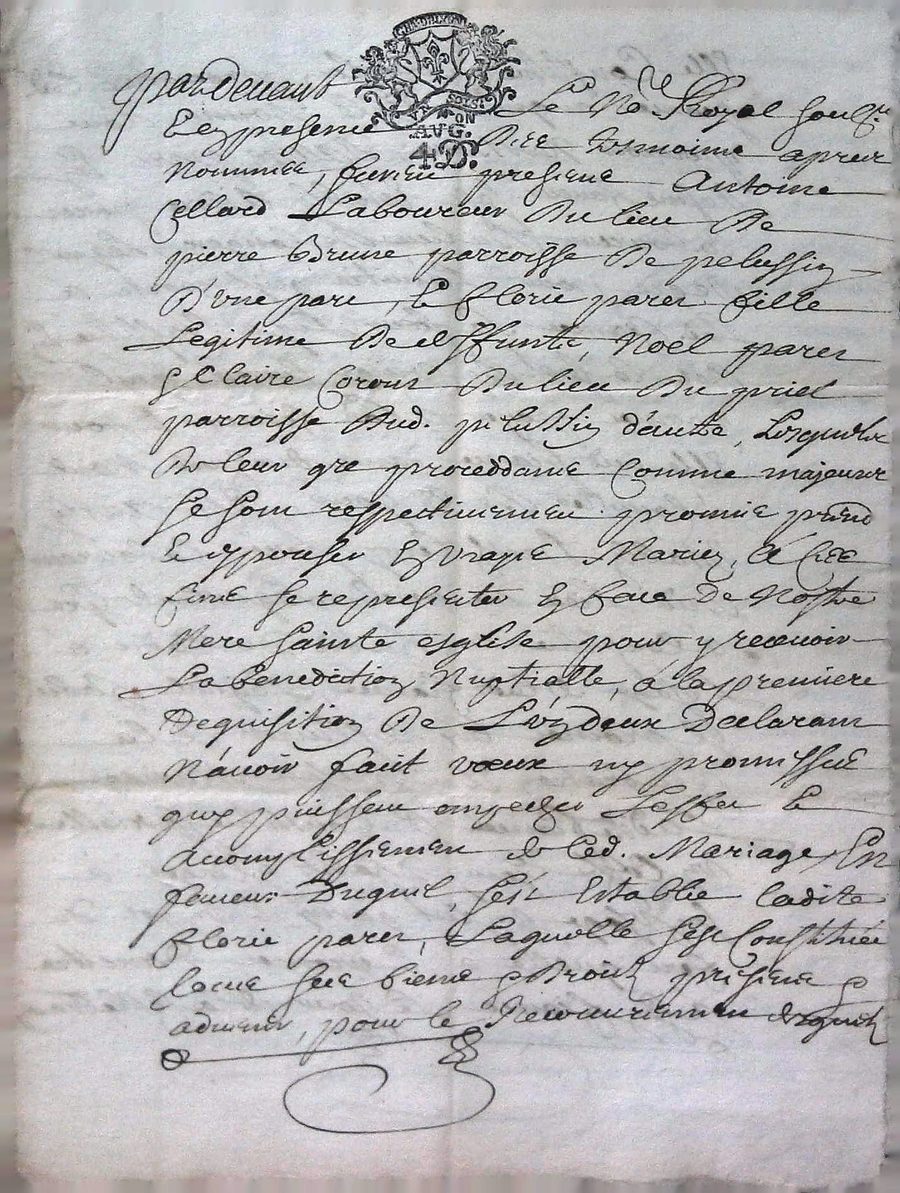 GEN. DE LYON
UN SOLS.
MOYON
AUG.
4 D.
pardevant Le No.re Royal soub.né
E en presence des tesmoins apres
nommes, furent presens Antoine
Cellard Laboureur du lieu de
pierre Brune parroisse de pelussin
D'une part, Et florie parer fille
Legitime de deffunts, Noel parer
& Claire Coront du lieu du priel
parroisse dud. pelussin d'autre, Lesquels
de leur gré proceddans comme majeurs
se sont respectivement promis prend
Et espouser En vraye Mariez, à ces
fins se representer En face de Nostre
Mere sainte esglise pour y recevoir
La benediction Nuptialle, à la premiere
Requisition de L'un deux Declarant
N'avoir fait vœux ny promisses
quy puissent empecher Leffet Et
acomplissement de Led. Mariage, En
faveur Duquel, s'est Establie ladite
florie parer, Laquelle sest Constituée
tous ses biens & Droits presens &
advenir, pour le Recouvrement desquels